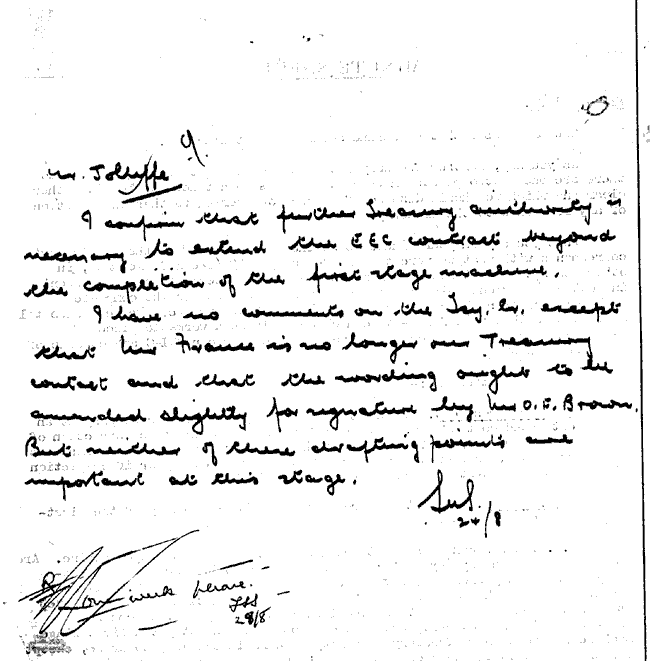 9/
Mr. Jolliffe
I confirm that further Treasury authority is
necessary to extend the EEC contract beyond
the completion of the first stage machine.
I have no comments on the Tsy. lr. except
that Mr France is no longer our Treasury
contact and that the wording ought to be
amended slightly for signature by Mr O.F. Brown.
But neither of these drafting points are
important at this stage.
24/8
one week please.
28/8